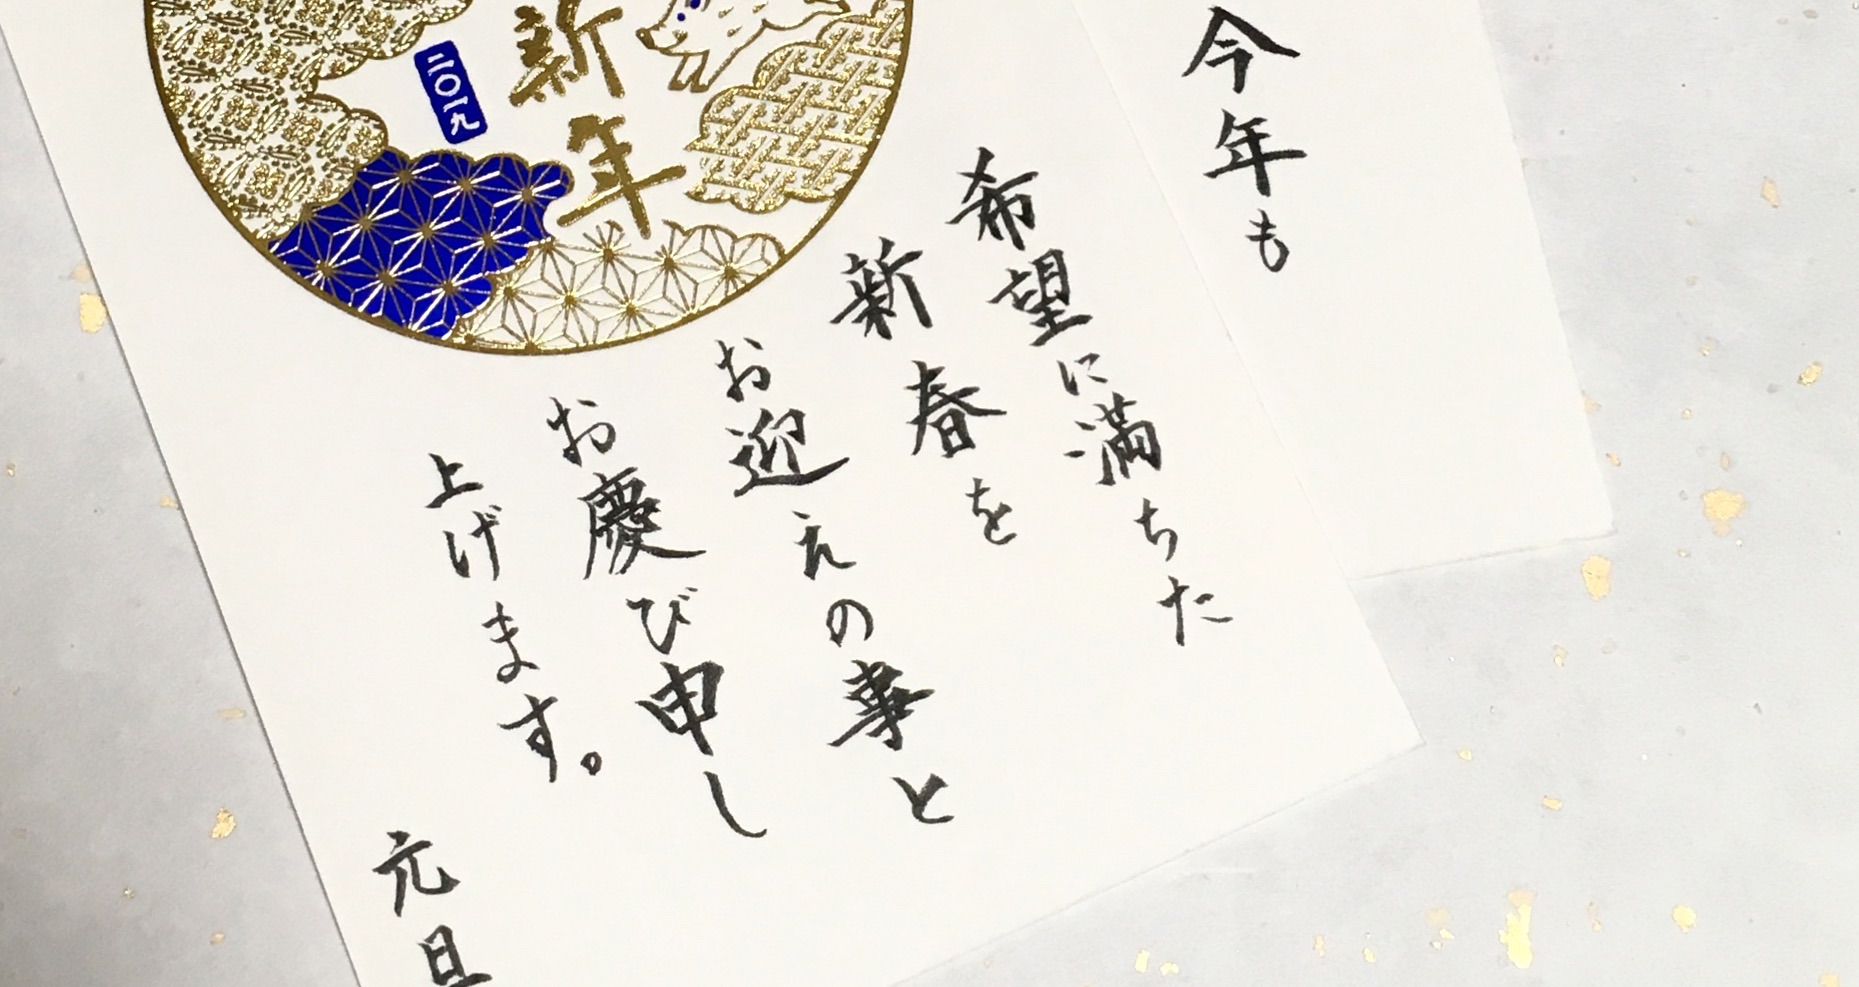 今年も
新年
二〇一九
希望に満ちた
新春を
お迎えの事と
お慶び申し
上げます。
元旦